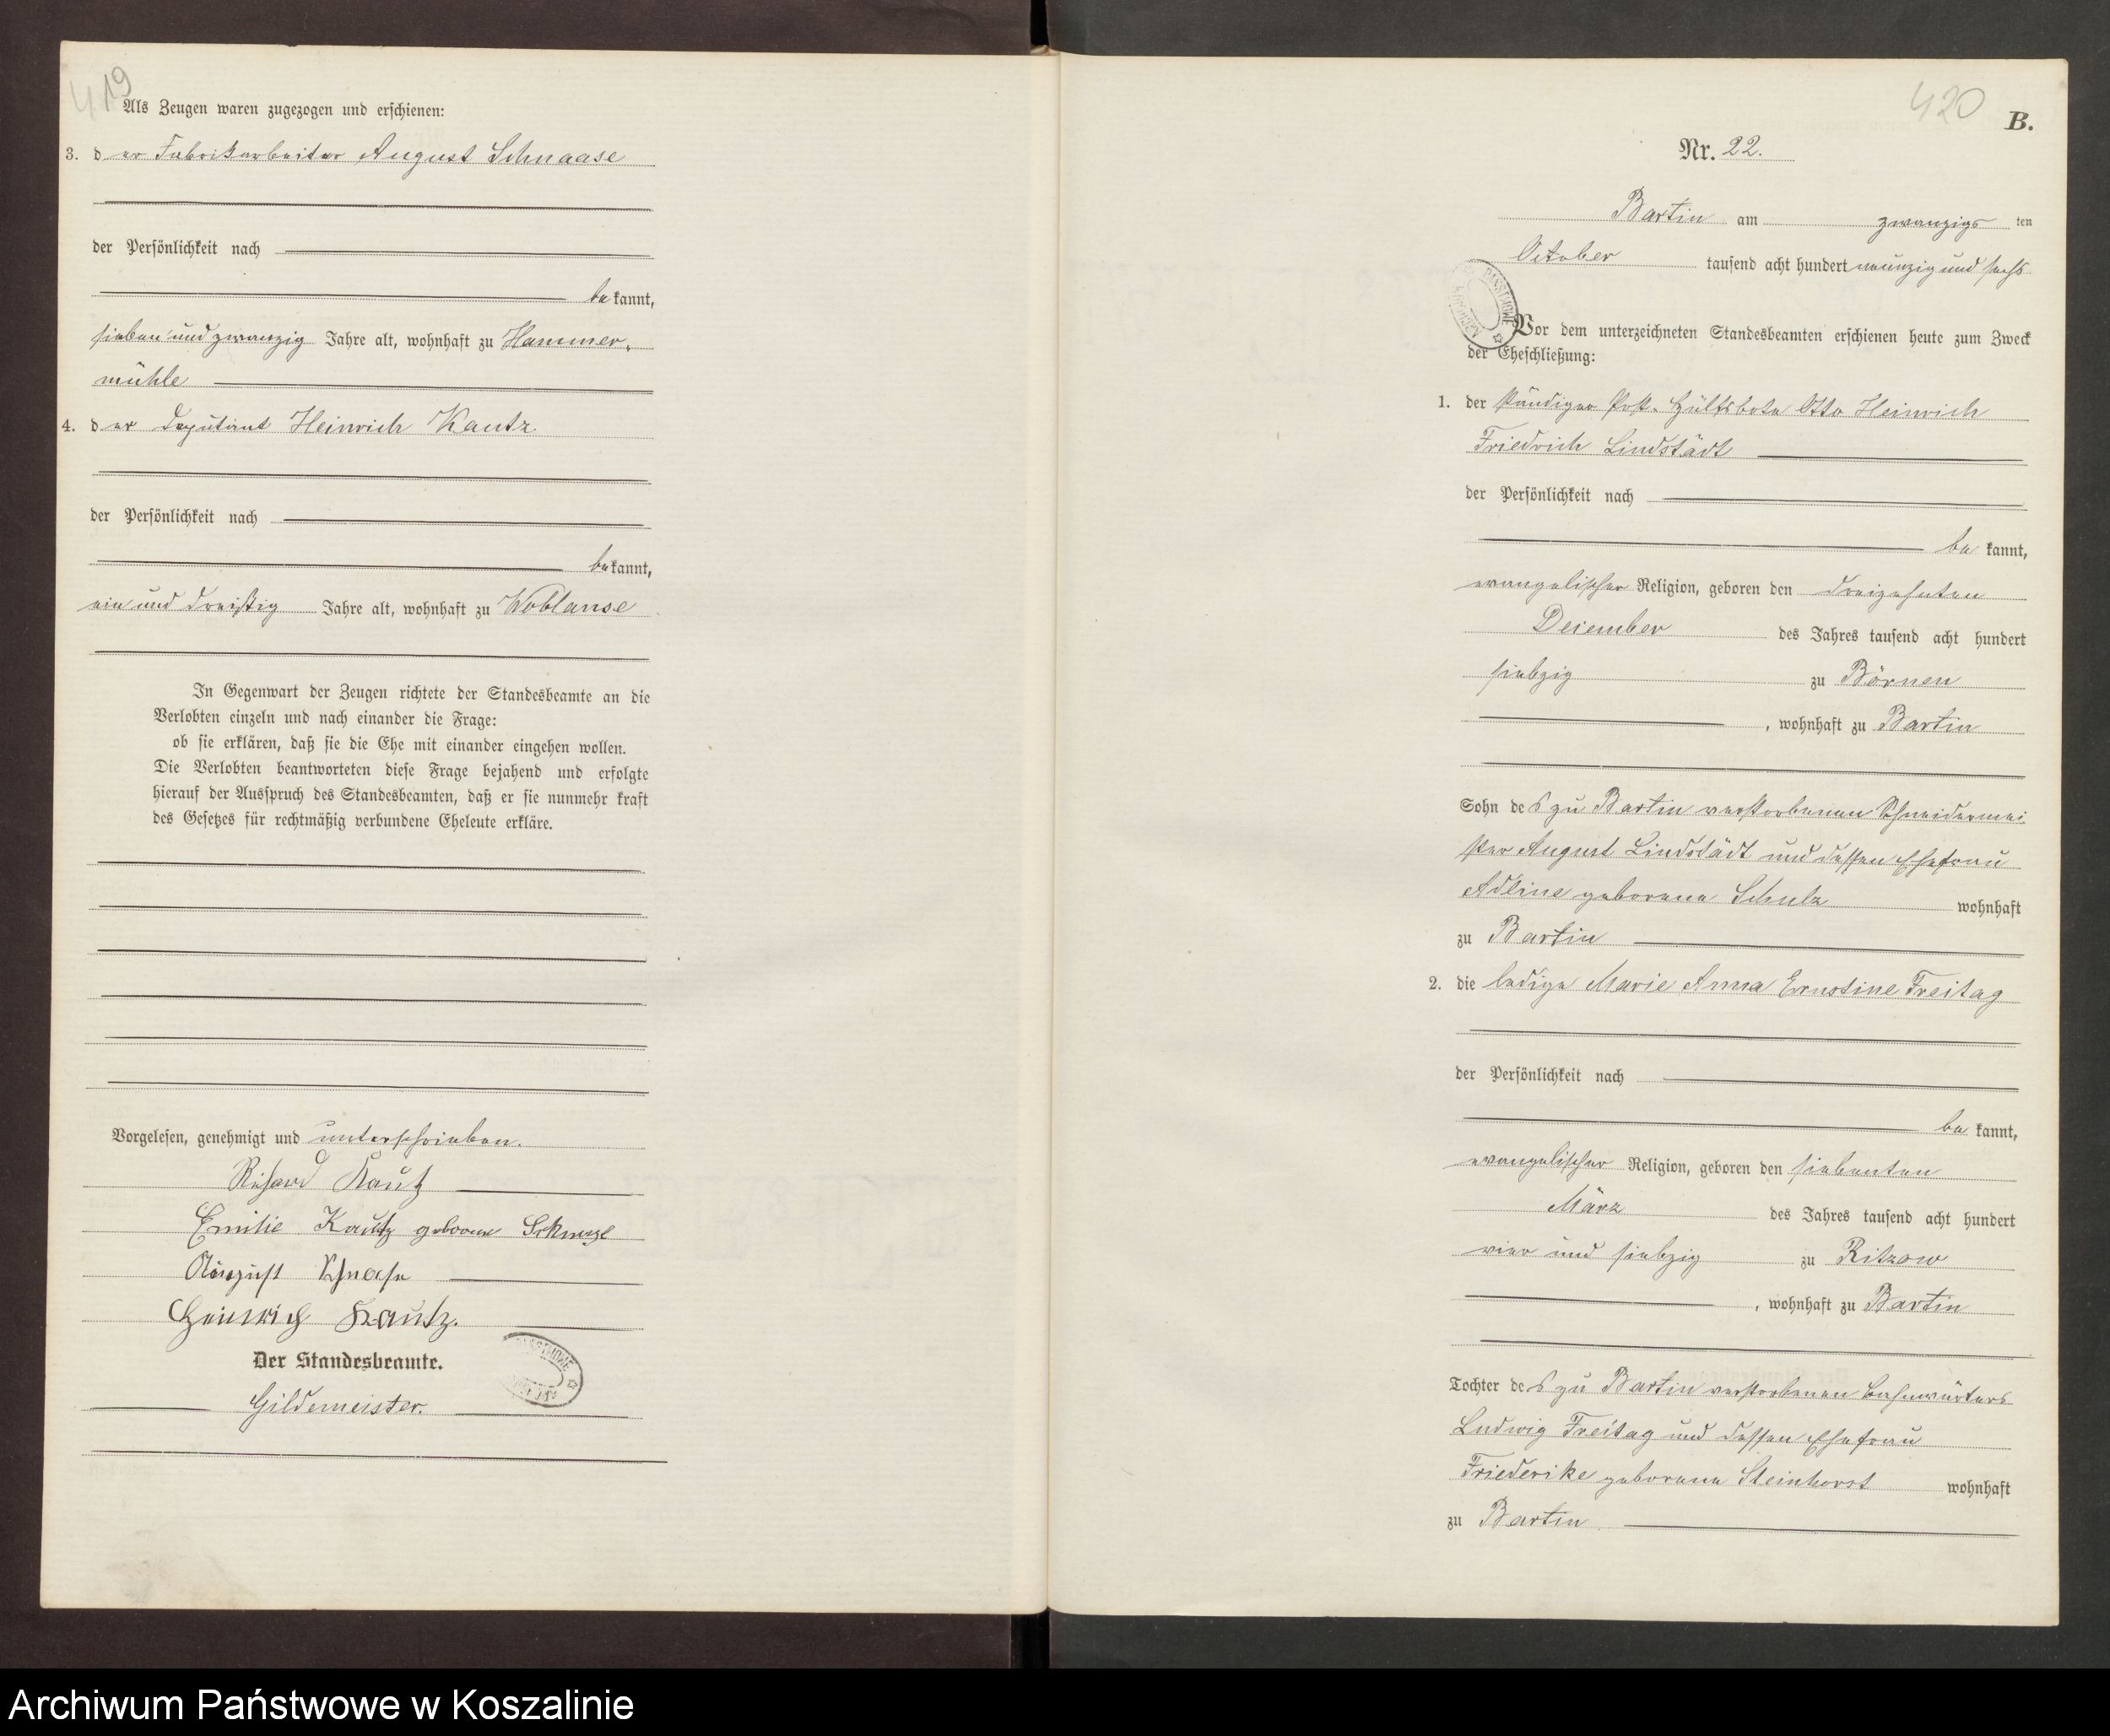 419
Als Zeugen waren zugezogen und erschienen:
3. der Fabrikarbeiter August Schnaase
der Persönlichkeit nach
bekannt,
sieben und zwanzig Jahre alt, wohnhaft zu Hammer-
mühle
4. der Deputant Heinrich Kautz
der Persönlichkeit nach
bekannt,
ein und dreißig Jahre alt, wohnhaft zu Woblanse
In Gegenwart der Zeugen richtete der Standesbeamte an die
Verlobten einzeln und nach einander die Frage:
ob sie erklären, daß sie die Ehe mit einander eingehen wollen.
Die Verlobten beantworteten diese Frage bejahend und erfolgte
hierauf der Ausspruch des Standesbeamten, daß er sie nunmehr kraft
des Gesetzes für rechtmäßig verbundene Eheleute erkläre.
Vorgelesen, genehmigt und unterschrieben.
Richard Kautz
Emilie Kautz geborene
August Schnase
Heinrich Kautz.
Der Standesbeamte.
Gildemeister.
420
B.
Nr. 22.
Bartin am zwanzigsten
October tausend acht hundert neunzig und sechs
Vor dem unterzeichneten Standesbeamten erschienen heute zum Zweck
der Eheschließung:
1. der ständiger Post-Hülfsbote Otto Heinrich
Friedrich Lindstädt
der Persönlichkeit nach
bekannt,
evangelischer Religion, geboren den dreizehnten
December des Jahres tausend acht hundert
siebzig zu Börnen
, wohnhaft zu Bartin
Sohn des zu Bartin verstorbenen Schneidermei-
ster August Lindstädt und dessen Ehefrau
Adline geborene Schulz wohnhaft
zu Bartin
2. die ledige Marie Anna Ernstine Freitag
der Persönlichkeit nach
bekannt,
evangelischer Religion, geboren den siebenten
März des Jahres tausend acht hundert
vier und siebzig zu Ritzow
, wohnhaft zu Bartin
Tochter des zu Bartin verstorbenen Bahnwärters
Ludwig Freitag und dessen Ehefrau
Friederike geborene Steinhorst wohnhaft
zu Bartin
Archiwum Państwowe w Koszalinie